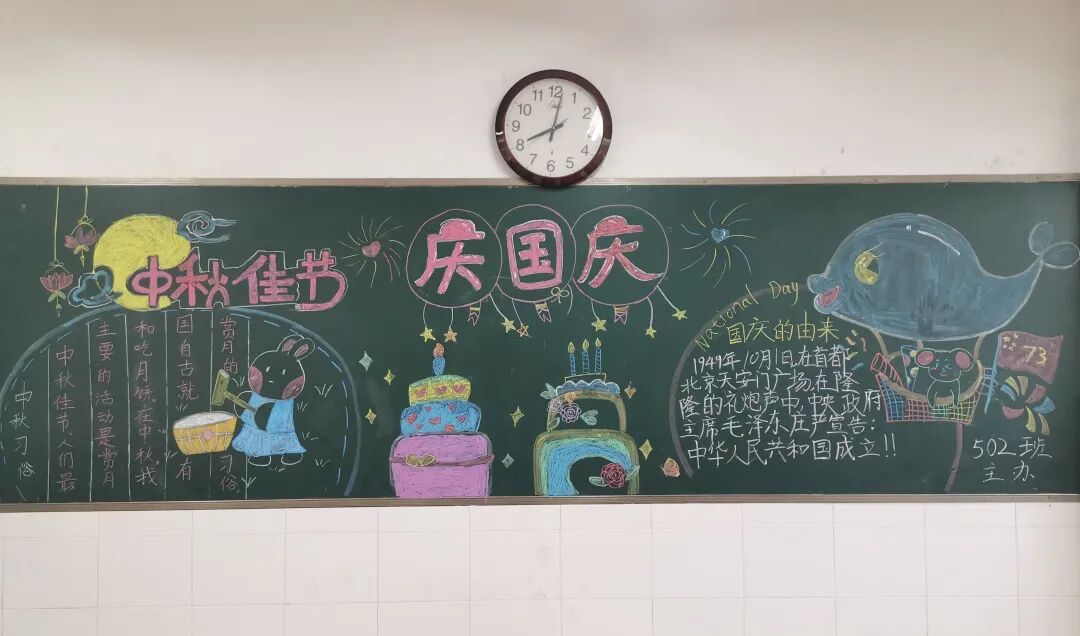 12
1
2
3
4
5
6
7
8
9
10
11
中秋佳节
中秋习俗
中秋佳节人们最
主要的活动是赏月
和吃月饼在中秋,我
国自古就有
赏月的习俗
庆国庆
National Day
国庆的由来
1949年10月1日在首都
北京天安门广场在隆
隆的礼炮声中,中央政府
主席毛泽东庄严宣告:
中华人民共和国成立!!
73
502班
主办